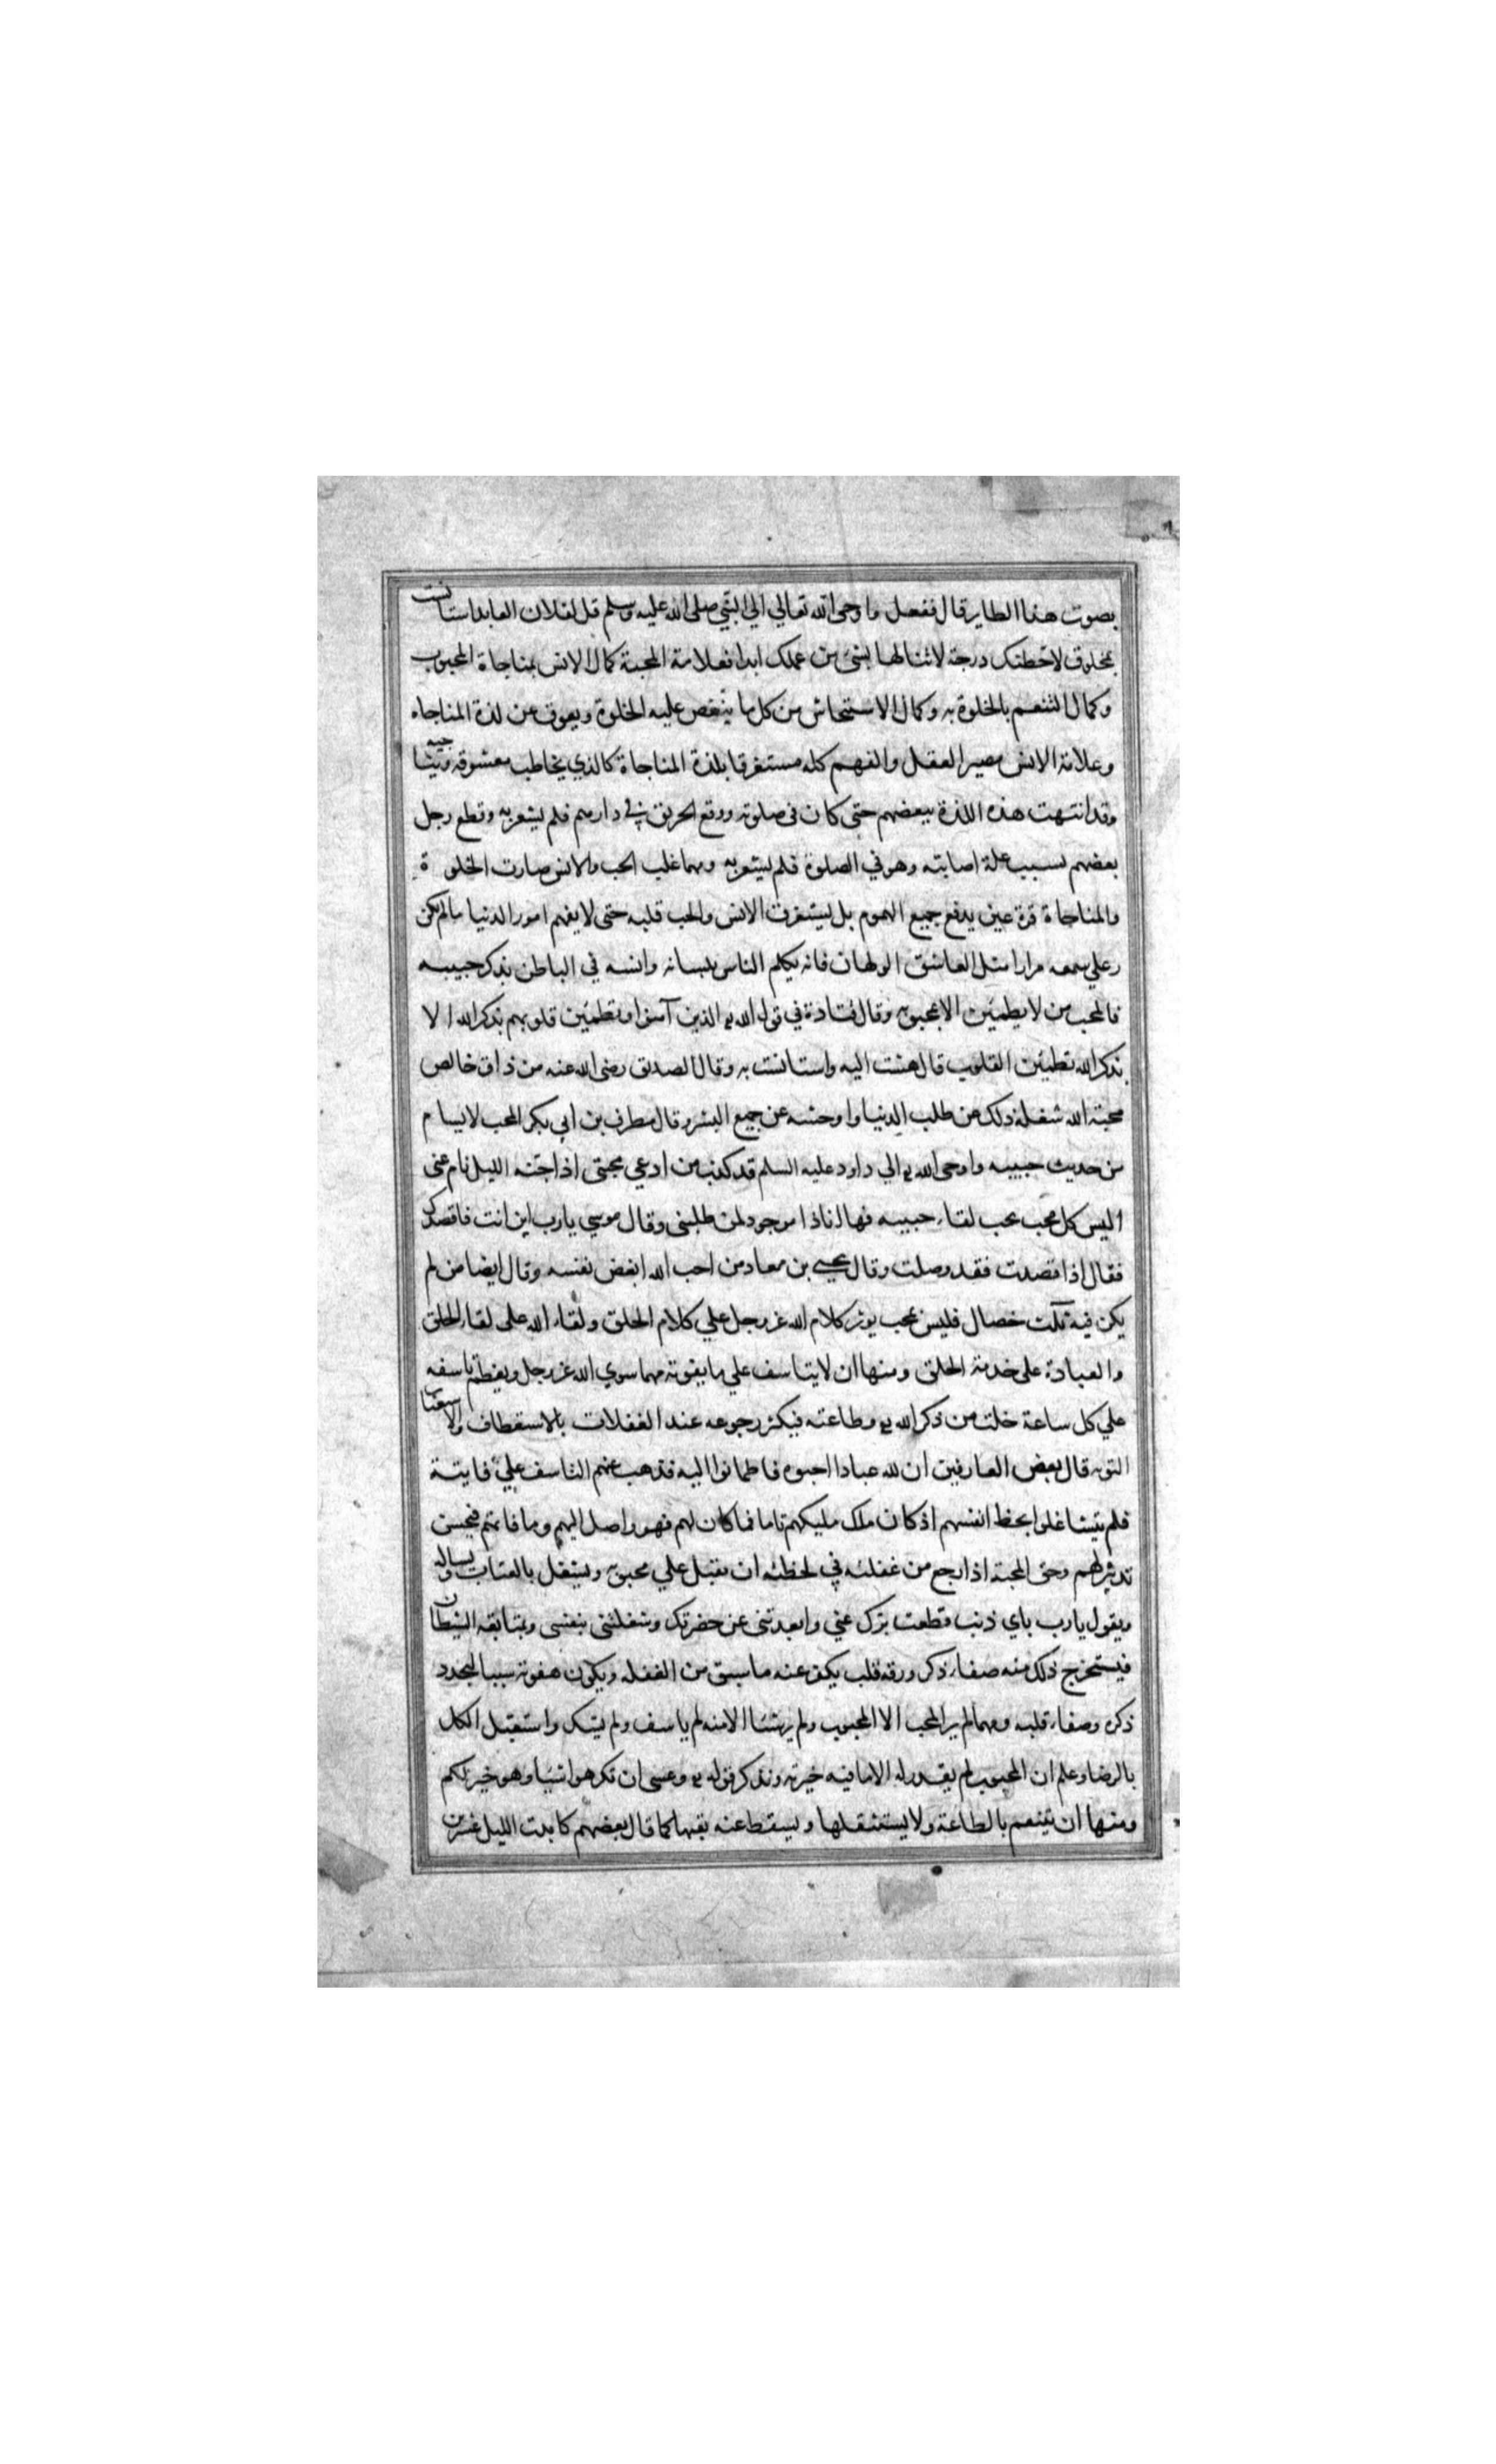 بصوت هذا الطاير قال ففعل واوحى الله تعالي الي النبي صلى الله عليه وسلم قل لفلان العابد استانست
بمخلوق لاحطنك درجة لا تنالها بشئ من عملك ابدا فعلامة المحبة كمال الانس بمناجاة المحبوب
وكمال التنعم بالخلوة به وكمال الاستحاش من كل ما ينغص عليه الخلوة ويعوق عن لذة المناجاه
وعلامة الانس مصير العقل والفهم كله مستغرقا بلذة المناجاة كالذي يخاطب معشوقه ويناجيه
وقد انتهت هذه اللذة ببعضهم حتى كان في صلوته ووقع الحريق في دارهم فلم يشعر به وقطع رجل
بعضهم بسبب علة اصابته وهو في الصلوة فلم يشعر به ومهما غلب الحب والانس صارت الخلوة
والمناجاة قرة عين يدفع جميع الهموم بل يستغرق الانس والحب قلبه حتى لا يفهم امور الدنيا مالم يكرر
علي سمعه مرارا مثل العاشق الولهان فانه يكلم الناس بلسانه وانسه في الباطن بذكر حبيبه
فالمحب من لا يطمئن الا بمحبوبه وقال قتادة في قول الله الذين آمنوا وتطمئن قلوبهم بذكر الله الا
بذكر الله تطمئن القلوب قال هشت اليه واستانست به وقال الصديق رضى الله عنه من ذاق خالص
محبة الله شغله ذلك عن طلب الدنيا واوحشه عن جميع البشر وقال مطرف بن ابي بكر المحب لا يسام
من حديث حبيبه واوحى الله الي داود عليه السلم قد كذب من ادعي محبتى اذا اجنه الليل نام عنى
اليس كل محب يحب لقاء حبيبه فها انا ذا موجود لمن طلبنى وقال موسي يا رب اين انت فاقصدك
فقال اذا قصدت فقد وصلت وقال يحيى بن معاد من احب الله ابغض نفسه وقال ايضا من لم
يكن فيه ثلث خصال فليس بمحب يوثر كلام الله عز وجل علي كلام الخلق ولقاء الله على لقاء الخلق
والعبادة على خدمة الخلق ومنها ان لا يتاسف علي ما يفوته مما سوي الله عز وجل ويعظم تاسفه
علي كل ساعة خلت من ذكر الله وطاعته فيكثر رجوعه عند الغفلات بالاستعطاف والاستعتاب
التوبه قال بعض العارفين ان لله عبادا احبوه فاطمانوا اليه فذهب عنهم التاسف علي فايتة
فلم يتشاغلوا بحظ انفسهم اذ كان ملك مليكهم تاما فما كان لهم فهو واصل اليهم وما فاتهم فبحسن
تدبيره لهم وحق المحبة اذا رجع من غفلته في لحظته ان يقبل علي محبوبه ويشتغل بالعتاب ويساله
ويقول يا رب باي ذنب قطعت برك عني وابعدتنى عن حضرتك وشغلتنى بنفسى وبمتابعة الشيطان
فيستخرج ذلك منه صفاء ذكر ورقة قلب يكفر عنه ما سبق من الغفله ويكون هفوته سببا لتجدد
ذكره وصفاء قلبه ومهما لم ير المحب الا المحبوب ولم ير شئا الا منه لم ياسف ولم يشك واستقبل الكل
بالرضا وعلم ان المحبوب لم يقدر له الا ما فيه خيرته وتذكر قوله وعسى ان تكرهوا شيئا وهو خير لكم
ومنها ان يتنعم بالطاعة ولا يستثقلها ويسقط عنه تعبها كما قال بعضهم كابدت الليل عشرين